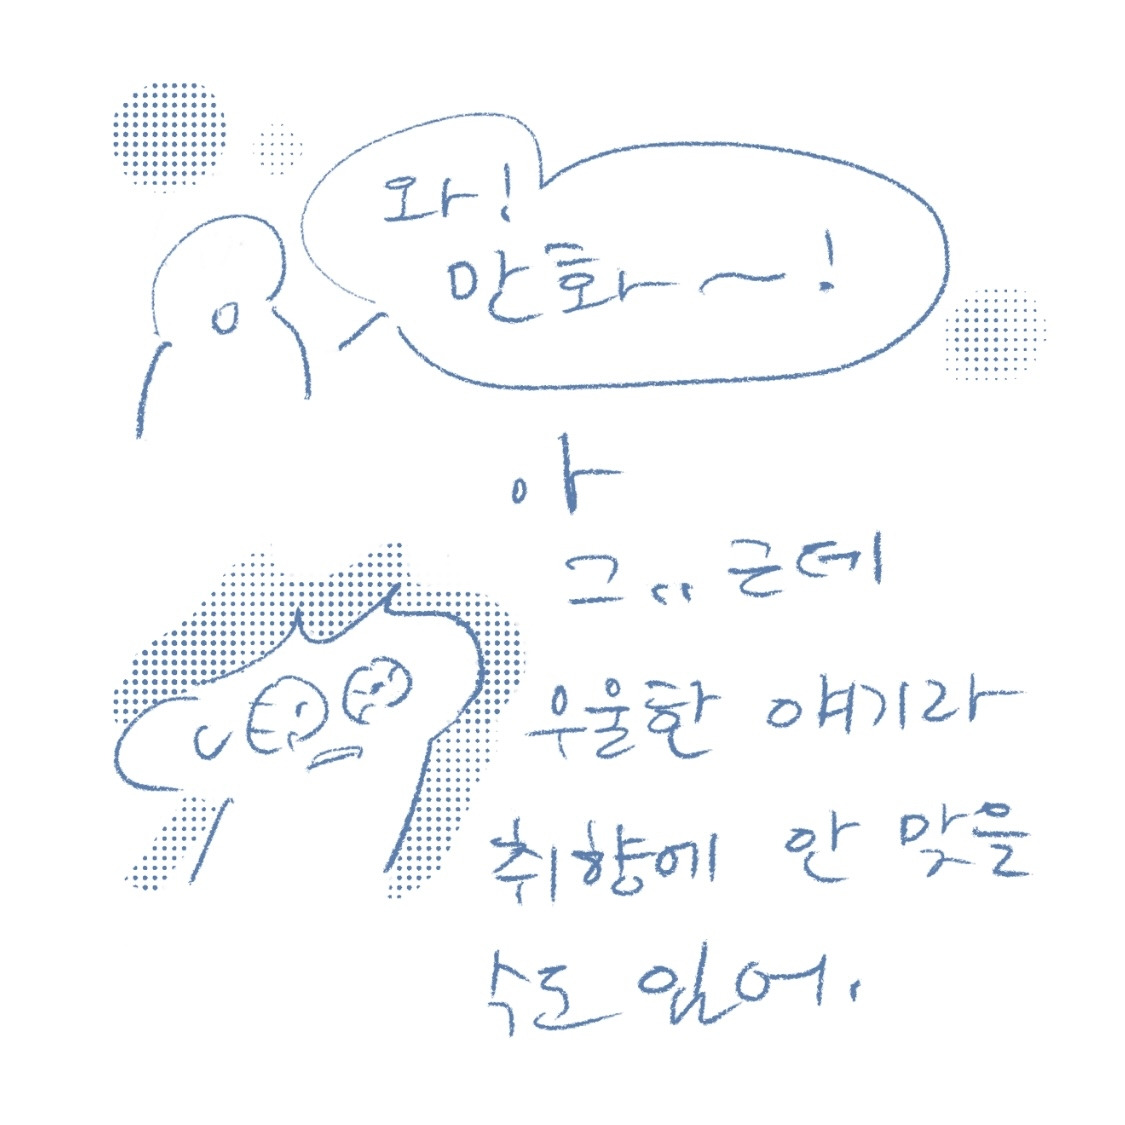 와!
만화~!
아
그.. 근데
우울한 얘기라
취향에 안 맞을
수도 있어.